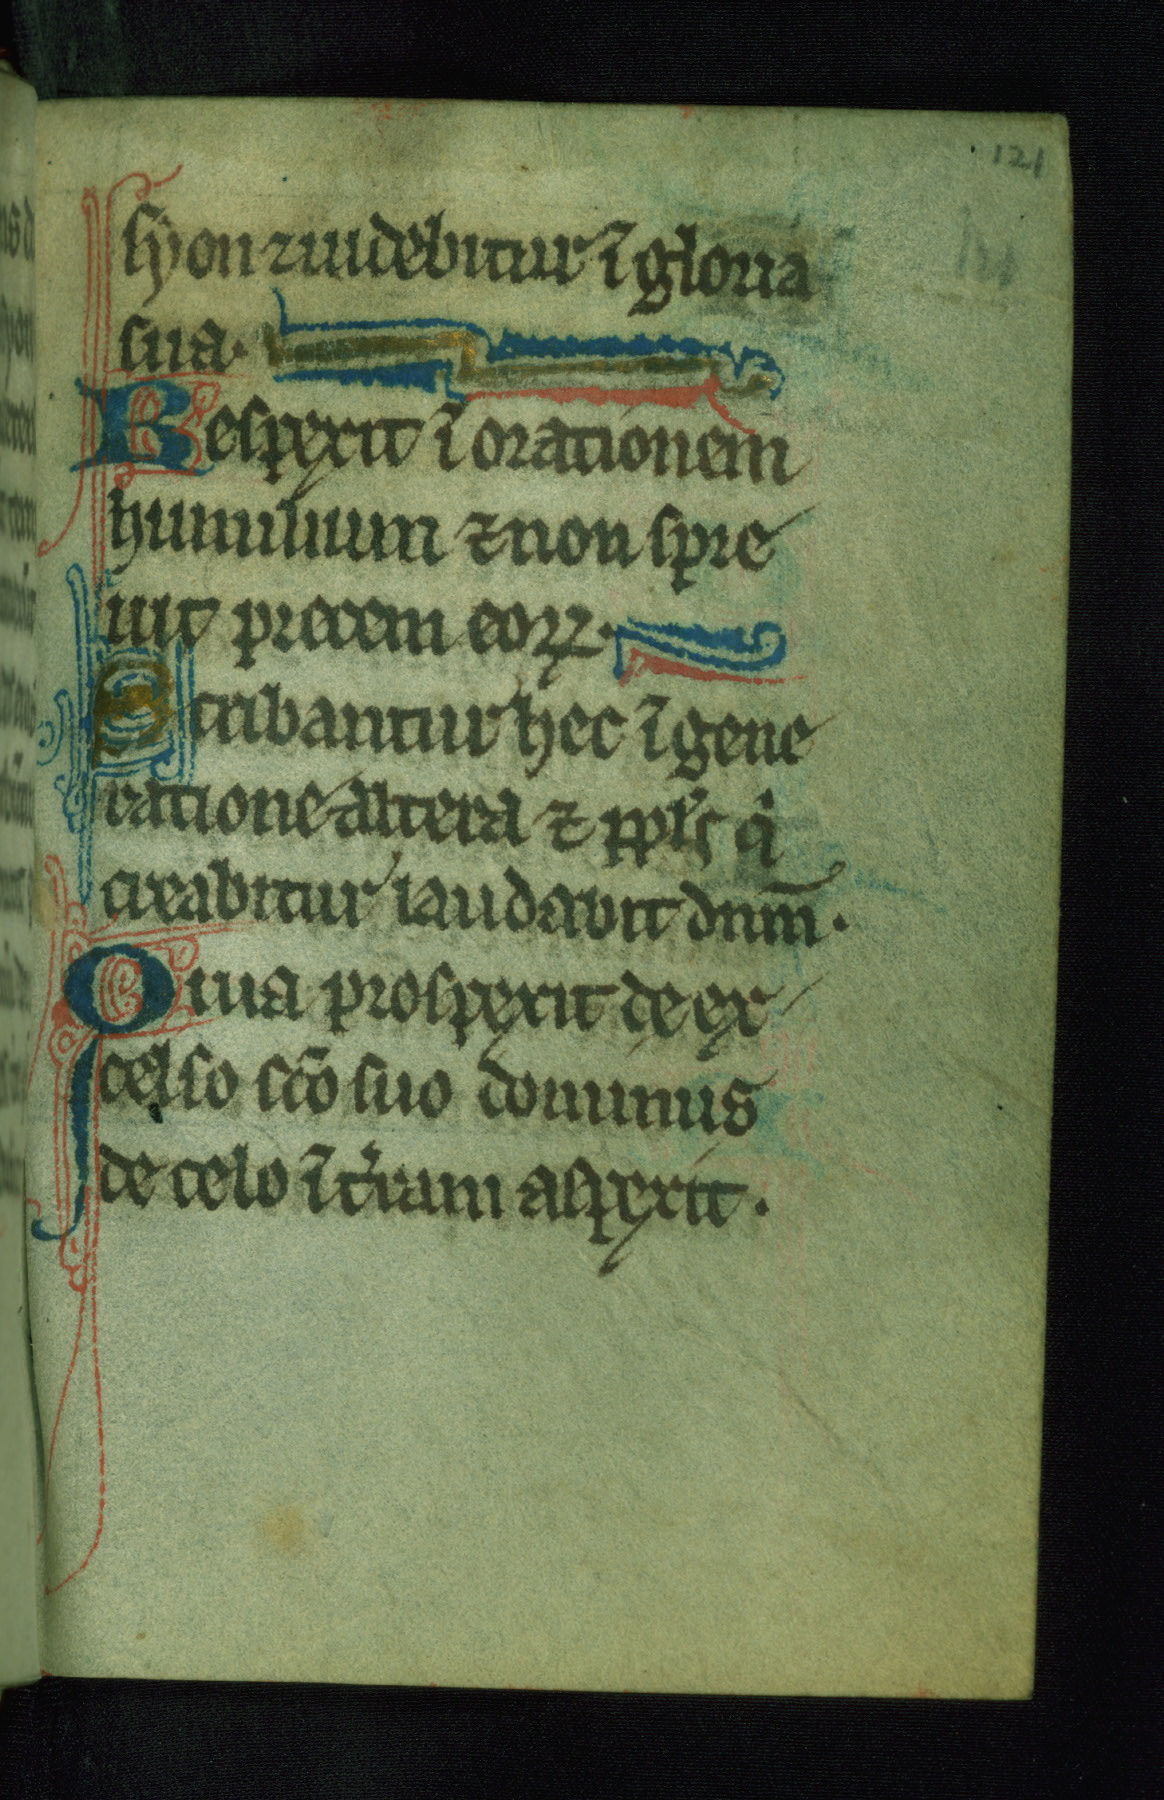 121
syon ⁊ uidebitur ĩ gloria
sua.
Respexit ĩ orationem
humilium ⁊ non spre
uit precem eoꝝ.
Scribantur hec ĩ gene
ratione altera ⁊ ppl̕s qⁱ
creabitur laudabit dnm̄.
Quia prospexit de ex
celso sc̄o suo dominus
de celo ĩ t̕ram aspexit.